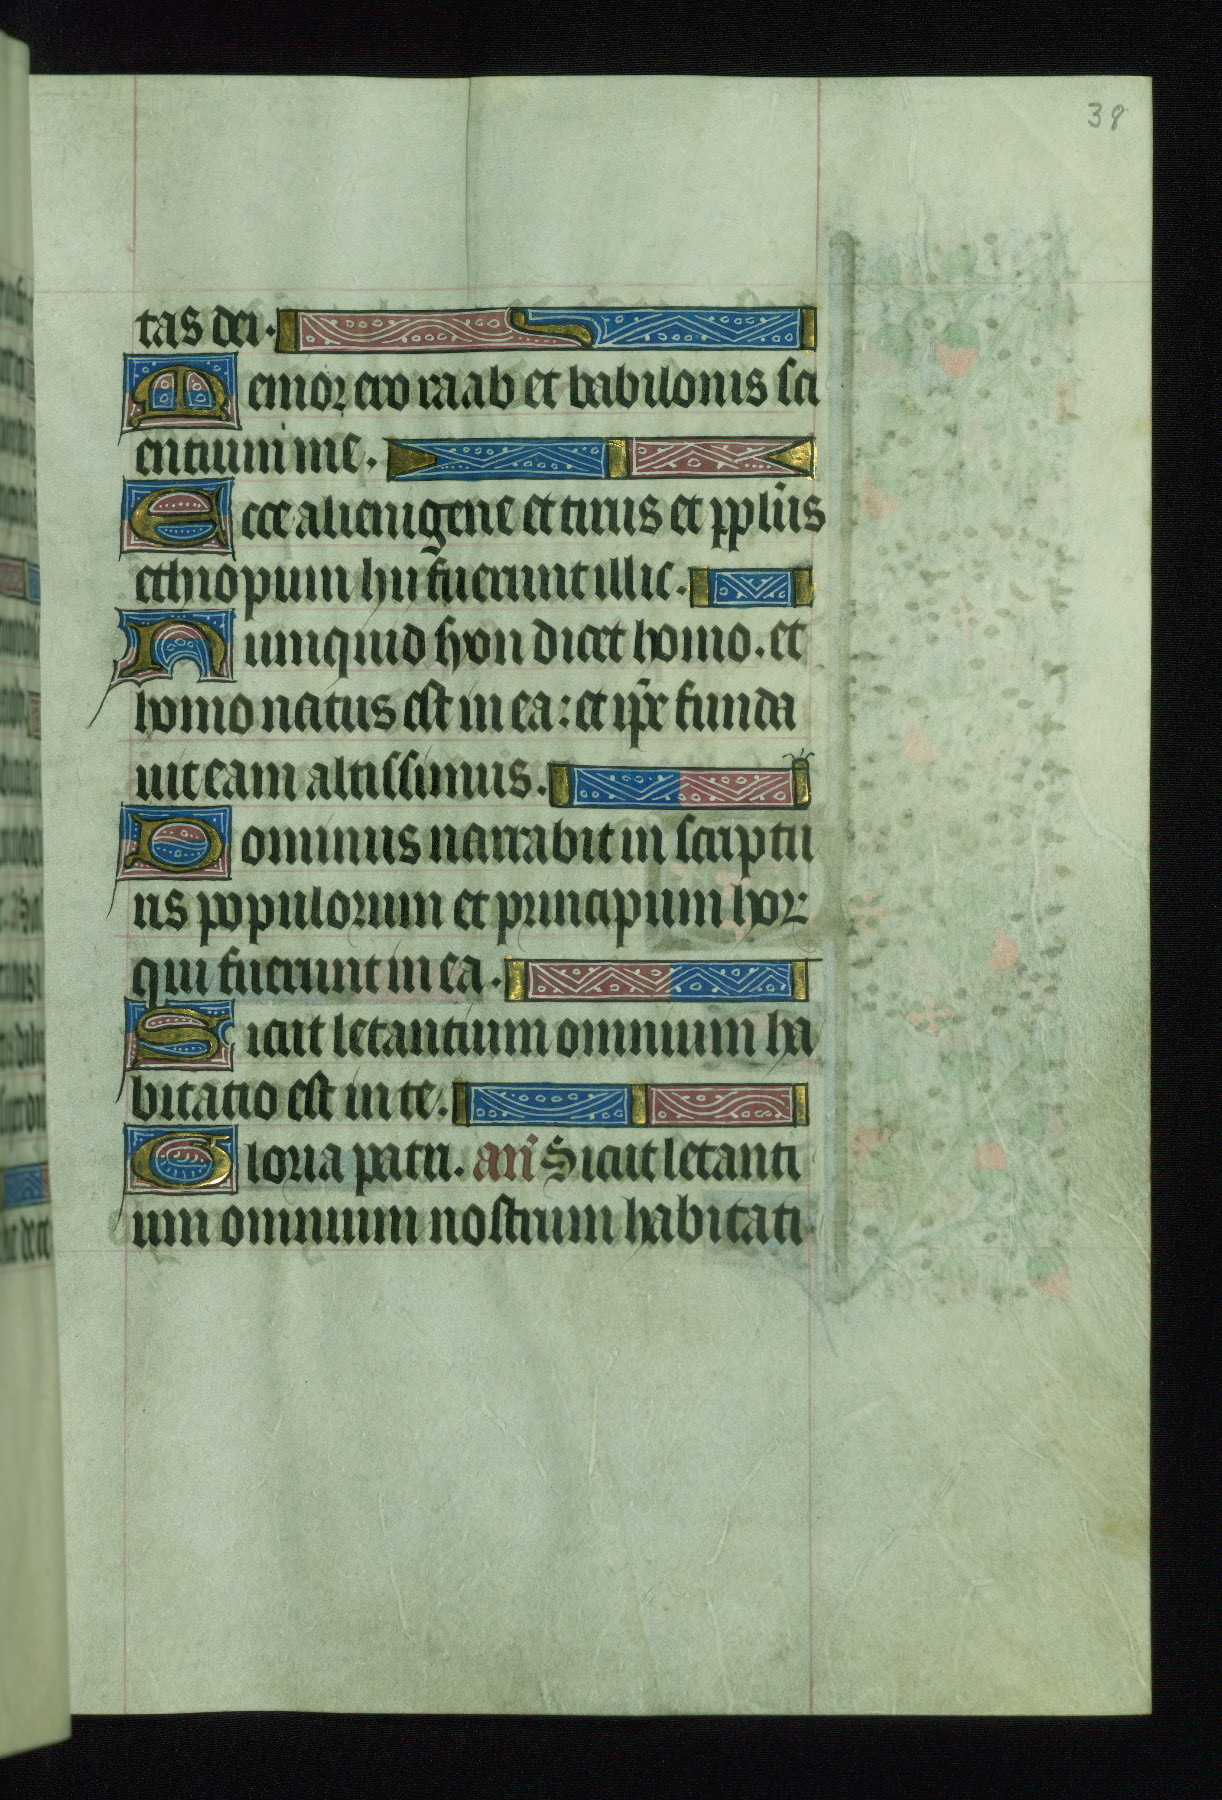 38
tas dei.
Memor ero raab et babilonis sci
entium me.
Ecce alienigene et tirus et pplūs
ethiopum hii fuerunt illic.
Numquid syon dicet homo. et
homo natus est in ea: et ip̄e funda
uit eam altissimus.
Dominus narrabit in scriptu
ris populorum et principum hoꝝ
qui fuerunt in ea.
Sicut letantium omnium ha
bitatio est in te.
Gloria patri. añ Sicut letanti
um omnium nostrum habitati